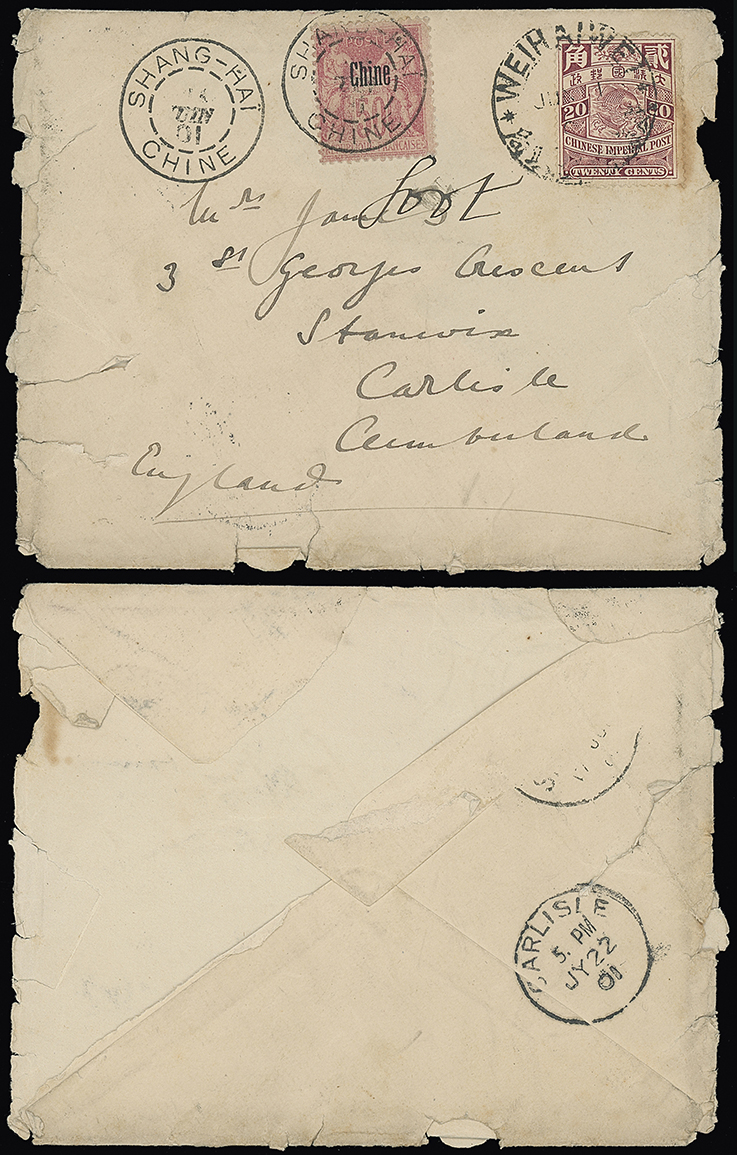 SHANG-HAI
JUIN
01
CHINE
SHANG-HAI
CHINE
POST
Chine
50
FRANÇAISE
WEIHAIWEI
貳
角
大清國郵政
20 20
CHINESE IMPERIAL POST
TWENTY CENTS
Mrs James Foot
3 St Georges Crescent
Stanwix
Carlisle
Cumberland
England
CARLISLE
5. PM
JY 22
01